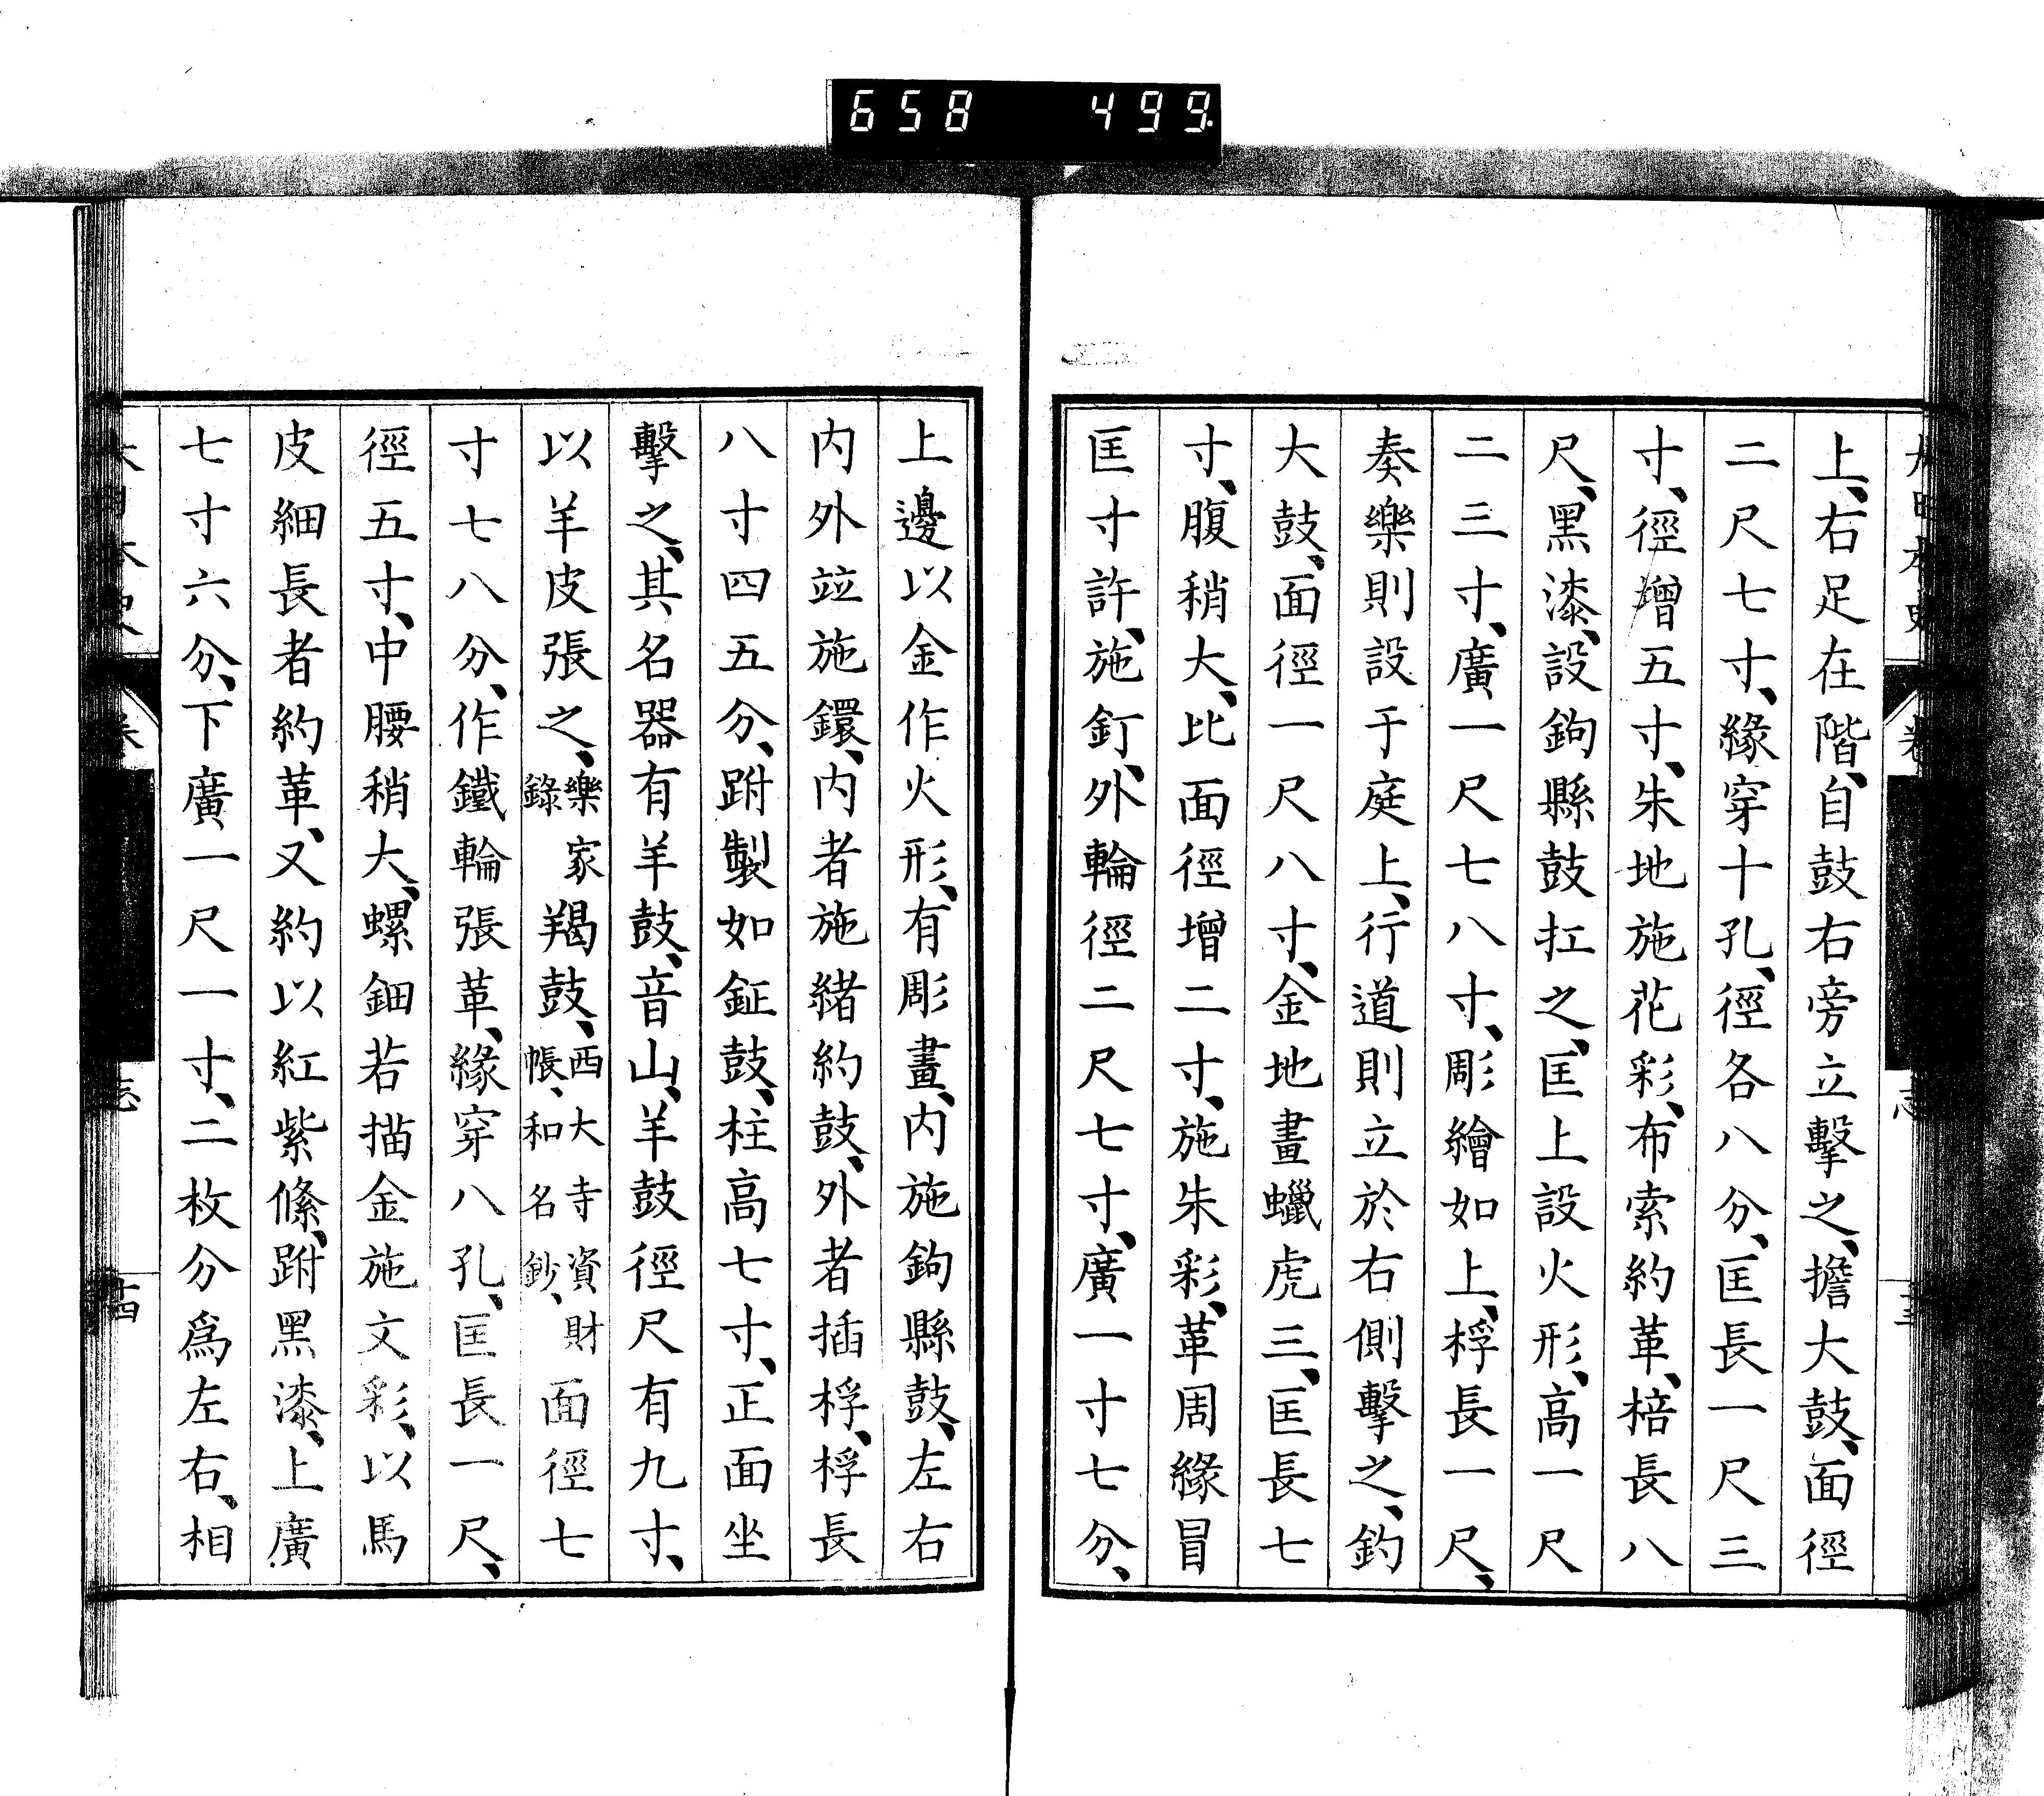 658 499
上、右足在階、自鼓右旁立擊之、擔大鼓、面徑
二尺七寸、緣穿十孔、徑各八分、匡長一尺三
寸、徑增五寸、朱地施花彩、布索約革、棓長八
尺、黑漆、設鉤縣鼓扛之、匡上設火形、高一尺
二三寸、廣一尺七八寸、彫繪如上、桴長一尺、
奏樂則設于庭上、行道則立於右側擊之、釣
大鼓、面徑一尺八寸、金地畫蠟虎三、匡長七
寸、腹稍大、比面徑增二寸、施朱彩、革周緣冒
匡寸許、施釘、外輪徑二尺七寸、廣一寸七分、
上邊以金作火形、有彫畫、內施鉤縣鼓、左右
內外竝施鐶、內者施緒約鼓、外者插桴、桴長
八寸四五分、跗製如鉦鼓、柱高七寸、正面坐
擊之、其名器有羊鼓、音山、羊鼓徑尺有九寸、
以羊皮張之、樂家錄羯鼓、西大寺資財帳、和名鈔、面徑七
寸七八分、作鐵輪張革、緣穿八孔、匡長一尺、
徑五寸、中腰稍大、螺鈿若描金施文彩、以馬
皮細長者約革、又約以紅紫絛、跗黑漆、上廣
七寸六分、下廣一尺一寸、二枚分爲左右、相
大日本史 卷 志 十四